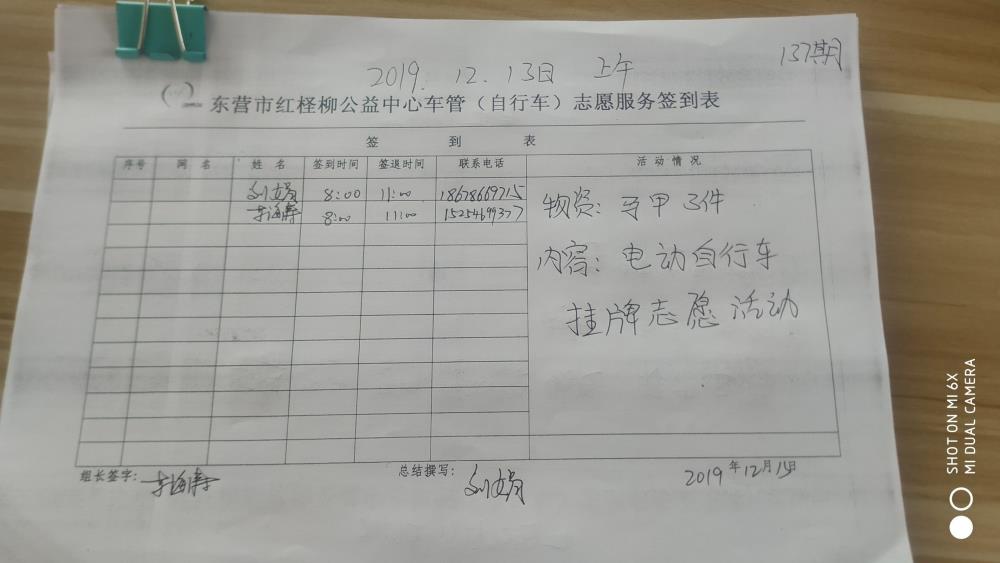 137期
2019. 12. 13日 上午
东营市红柽柳公益中心车管（自行车）志愿服务签到表
签 到 表
序号 网 名 姓 名 签到时间 签退时间 联系电话 活 动 情 况
刘娟 8:00 11:00 18678669715
李海涛 8:00 11:00 15254699377
物资: 马甲 3件
内容: 电动自行车
挂牌志愿活动
组长签字: 李海涛 总结撰写: 刘娟 2019年12月13日
SHOT ON MI 6X
MI DUAL CAMERA